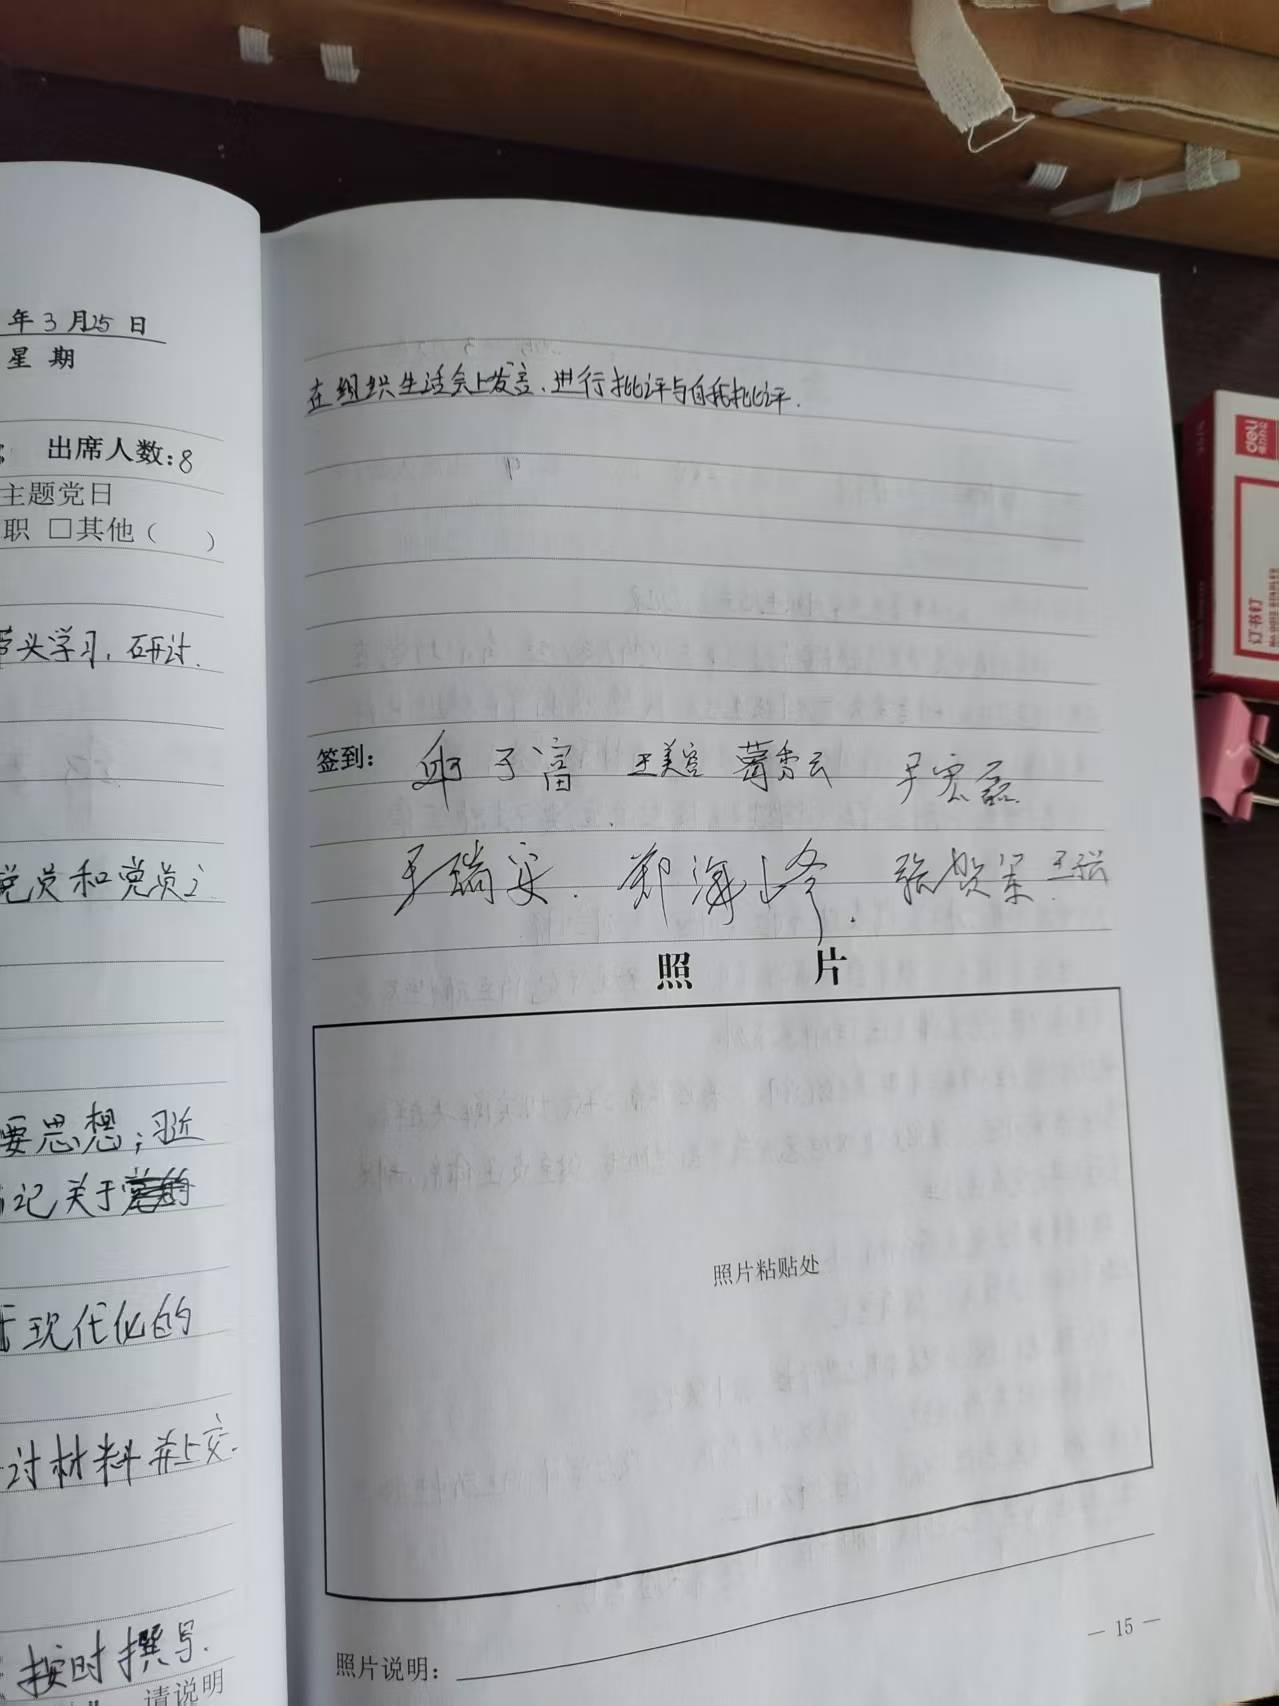 年3月25日
星 期
出席人数:8
主题党日
职 □其他( )
带头学习,研讨.
党员和党员
要思想;习近
记关于
现代化的
讨材料并上交.
按时撰写.
请说明
在组织生活会上发言、进行批评与自我批评.
签到: 于富 王美容 葛秀云
郑海峰. 张贺 王
照 片
照片粘贴处
照片说明:
— 15 —
deli
得力
订书钉